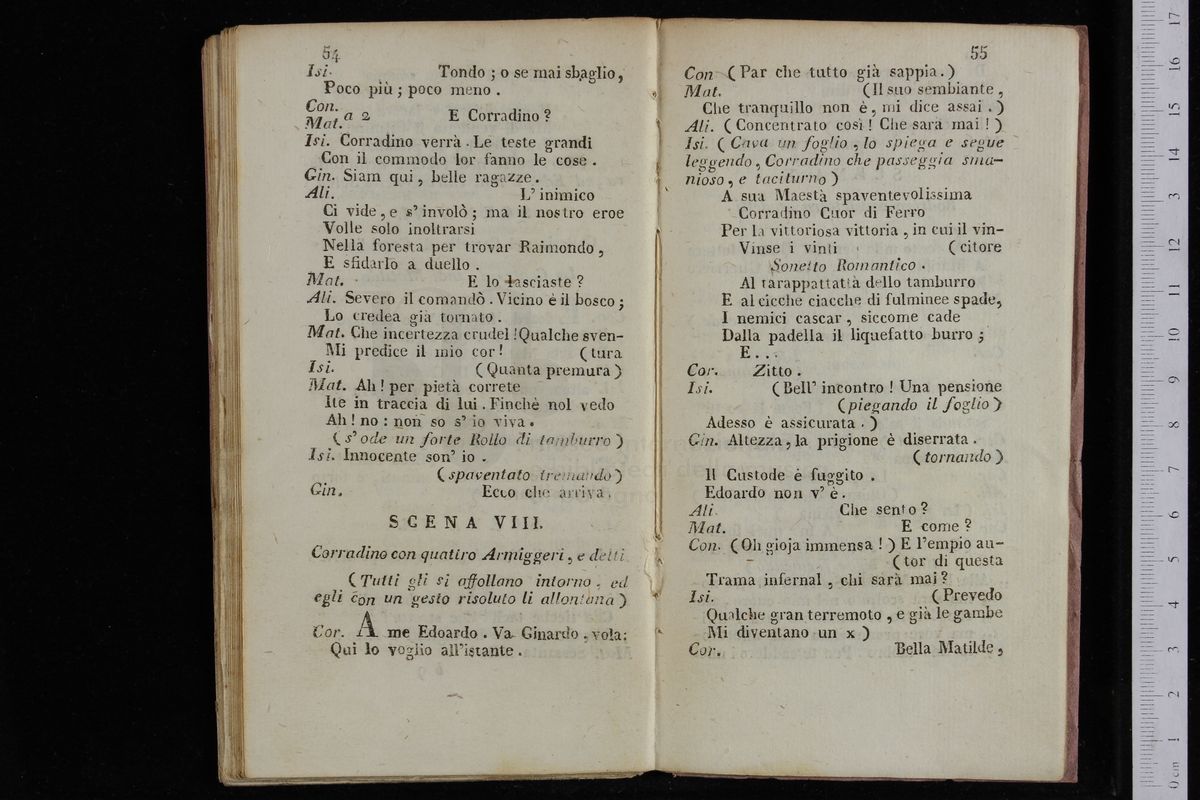 54
Isi. Tondo ; o se mai sbaglio,
Poco più ; poco meno .
Con.
Mat. a 2 E Corradino ?
Isi. Corradino verrà . Le teste grandi
Con il commodo lor fanno le cose .
Gin. Siam qui , belle ragazze .
Ali. L' inimico
Ci vide , e s' involò ; ma il nostro eroe
Volle solo inoltrarsi
Nella foresta per trovar Raimondo ,
E sfidarlo a duello .
Mat. E lo lasciaste ?
Ali. Severo il comandò . Vicino è il bosco ;
Lo credea già tornato .
Mat. Che incertezza crudel ! Qualche sven-
Mi predice il mio cor ! (tura
Isi. (Quanta premura)
Mat. Ah ! per pietà correte
Ite in traccia di lui . Finchè nol vedo
Ah ! no : non so s' io viva .
(s' ode un forte Rollo di tamburro)
Isi. Innocente son' io .
(spaventato tremando)
Gin. Ecco che arriva .
SCENA VIII.
Corradino con quattro Armiggeri , e detti
(Tutti gli si affollano intorno , ed
egli con un gesto risoluto li allontana)
Cor. A me Edoardo . Va Ginardo , vola :
Qui lo voglio all'istante .
55
Con (Par che tutto già sappia .)
Mat. (Il suo sembiante ,
Che tranquillo non è , mi dice assai .)
Ali. (Concentrato così ! Che sarà mai !)
Isi. (Cava un foglio , lo spiega e segue
leggendo , Corradino che passeggia sma-
nioso , e taciturno)
A sua Maestà spaventevolissima
Corradino Cuor di Ferro
Per la vittoriosa vittoria , in cui il vin-
Vinse i vinti (citore
Sonetto Romantico .
Al tarappattatà dello tamburro
E al cicche ciacche di fulminee spade,
I nemici cascar , siccome cade
Dalla padella il liquefatto burro ;
E...
Cor. Zitto .
Isi. (Bell' incontro ! Una pensione
(piegando il foglio)
Adesso è assicurata .)
Gin. Altezza , la prigione è diserrata .
(tornando)
Il Custode è fuggito .
Edoardo non v' è .
Ali. Che sento ?
Mat. E come ?
Con. (Oh gioja immensa !) E l'empio au-
(tor di questa
Trama infernal , chi sarà mai ?
Isi. (Prevedo
Qualche gran terremoto , e già le gambe
Mi diventano un x)
Cor. Bella Matilde ,
0 cm 1 2 3 4 5 6 7 8 9 10 11 12 13 14 15 16 17